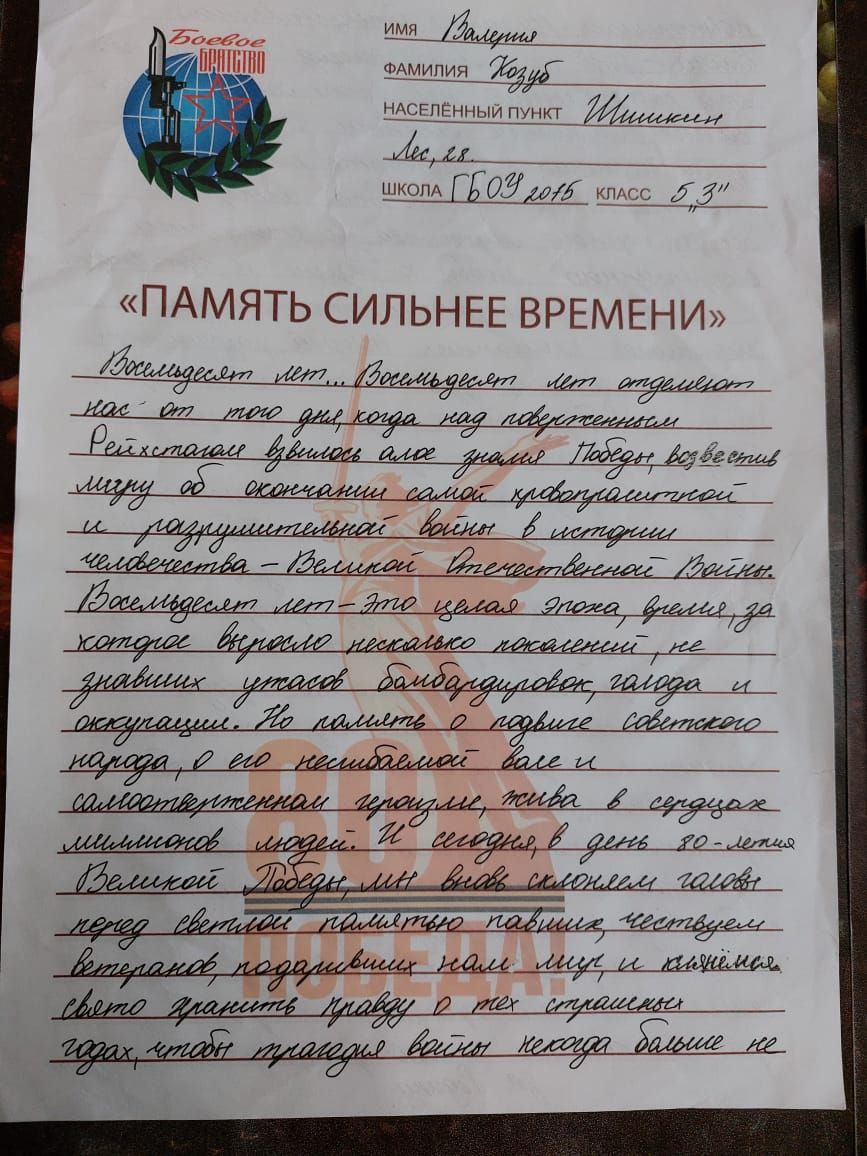 Боевое
БРАТСТВО
ИМЯ Валерия
ФАМИЛИЯ Козуб
НАСЕЛЁННЫЙ ПУНКТ Шишкин
Лес, 28.
ШКОЛА ГБОУ 2075 КЛАСС 5 „З"
«ПАМЯТЬ СИЛЬНЕЕ ВРЕМЕНИ»
Восемьдесят лет... Восемьдесят лет отделяют
нас от того дня, когда над поверженным
Рейхстагом взвилось алое знамя Победы, возвестив
миру об окончании самой кровопролитной
и разрушительной войны в истории
человечества – Великой Отечественной Войны.
Восемьдесят лет – это целая эпоха, время, за
которое выросло несколько поколений, не
знавших ужасов бомбардировок, голода и
оккупации. Но память о подвиге советского
народа, о его несгибаемой воле и
самоотверженном героизме, жива в сердцах
миллионов людей. И сегодня, в день 80-летия
Великой Победы, мы вновь склоняем головы
перед светлой памятью павших, чествуем
ветеранов, подаривших нам мир, и клянёмся
свято хранить правду о тех страшных
годах, чтобы трагедия войны некогда больше не
80
ПОБЕДА!